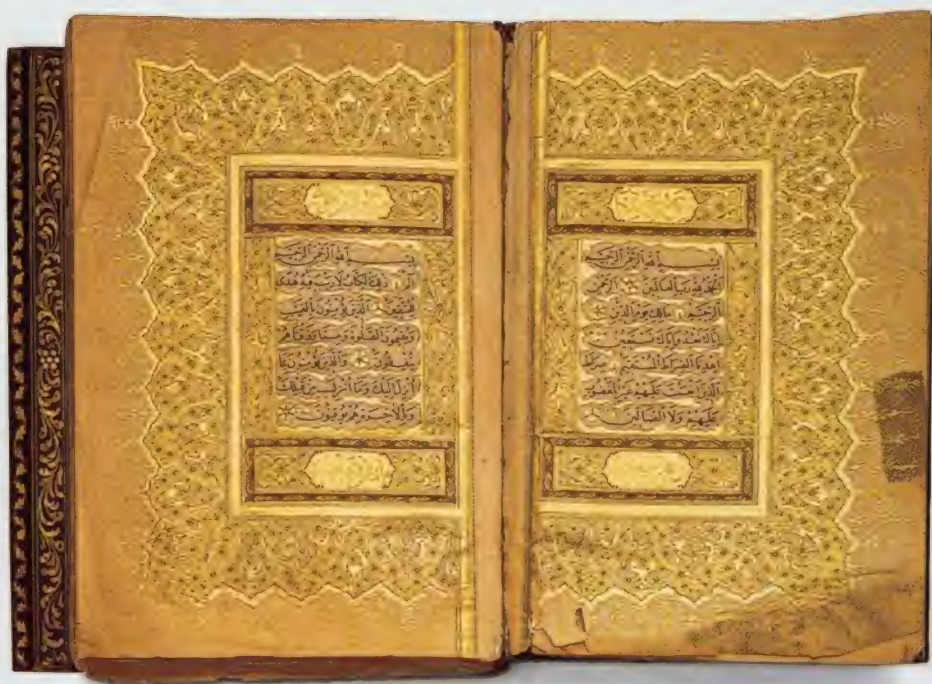 بسم الله الرحمن الرحيم
الحمد لله رب العالمين الرحمن
الرحيم مالك يوم الدين
إياك نعبد وإياك نستعين
اهدنا الصراط المستقيم صراط
الذين أنعمت عليهم غير المغضوب
عليهم ولا الضالين
بسم الله الرحمن الرحيم
الم ذلك الكتاب لا ريب فيه هدى
للمتقين الذين يؤمنون بالغيب
ويقيمون الصلوة ومما رزقناهم
ينفقون والذين يؤمنون بما
أنزل إليك وما أنزل من قبلك
وبالآخرة هم يوقنون